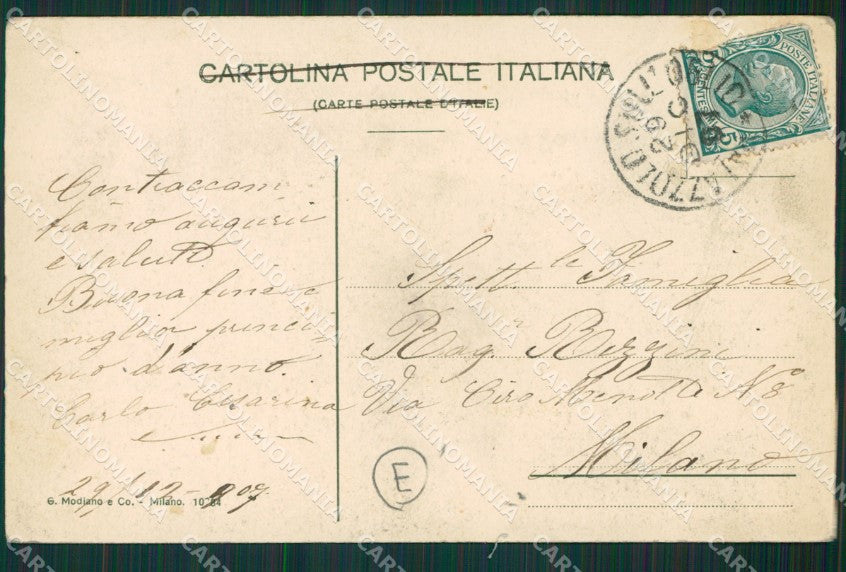 CARTOLINA POSTALE ITALIANA
(CARTE POSTALE D'ITALIE)
POSTE ITALIANE
5
29 12
Contraccam
biamo auguri
e saluti.
Buona fine e
miglior princi-
pio d'anno.
Carlo Cesarina
29/12-907
G. Modiano e Co. - Milano.
Spett. le Famiglia
Rag. Bezzini
Via Ciro Menotti N 8
Milano
E
CARTOLINOMANIA